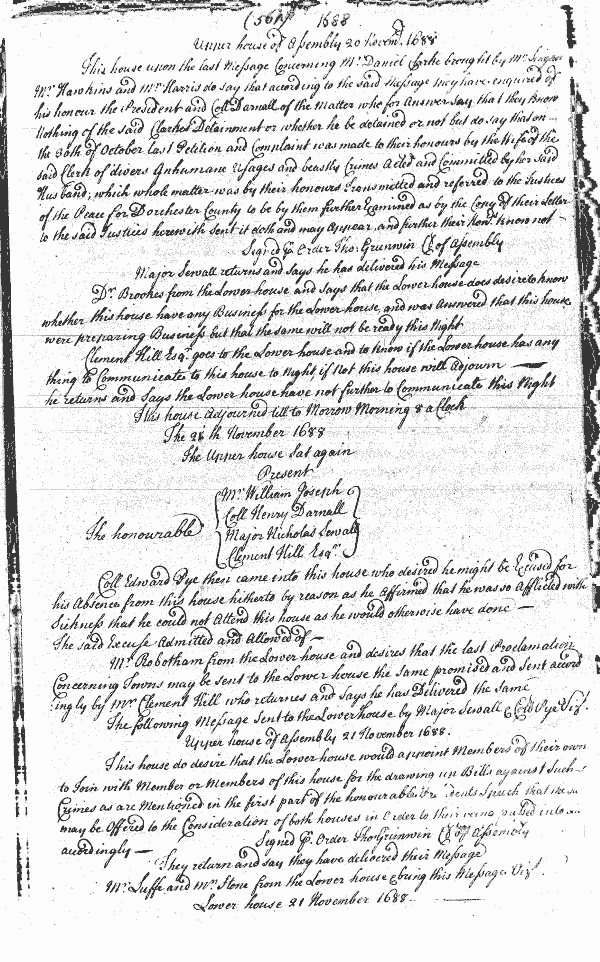 (56) 1688
Upper house of Assembly 20 Novem.r 1688
This house upon the last Message Concerning Mr. Daniel Clarke brought by Mr.
Mr. Hawkins and Mr. Harris do say that according to the said Message they have enquired of
his honour the President and Coll Darnall of the Matter who for Answer say that they know
Nothing of the said Clarkes Detainment or whether he be detained or not but do say that on
the 30th of October last Petition and Complaint was made to their honours by the Wife of the
said Clerk of divers Unhumane Usages and beastly Crimes Acted and Committed by her said
Husband; which whole matter was by their honours Transmitted and referred to the Justices
of the Peace for Dorchester County to be by them further Examined as by the Copy of their Letter
to the said Justices herewith sent it doth and may Appear and further their Hon.rs know not
Signed P. Order Tho: Grunwin Cl. of Assembly
Major Sewall returns and says he has delivered his Message
Dr. Brookes from the Lower house and says that the Lower house does desire to know
whether this house have any Business for the Lower house, and was Answered that this house
were preparing Business but that the same will not be ready this Night
Clement Hill Esq.r goes to the Lower house and to know if the Lower house has any
thing to Communicate to this house to Night, if Not this house will Adjourn —
he returns and says the Lower house have not further to Communicate this Night
This house Adjourned till to Morrow Morning 8 a Clock
The 21th November 1688
The Upper house Sat again
Present
The honourable
Mr. William Joseph
Coll Henry Darnall
Major Nicholas Sewall
Clement Hill Esq.r
Coll Edward Pye then came into this house who desired he might be Excused for
his Absence from this house hitherto by reason as he Affirmed that he was so Afflicted with
Sickness that he could not Attend this house as he would otherwise have done —
The said Excuse Admitted and Allowed of —
Mr. Robotham from the Lower house and desires that the last Proclamation
Concerning Towns may be sent to the Lower house the same promised and sent accord
ingly by Mr. Clement Hill who returnes and says he has Delivered the same
The following Message sent to the Lower house by Major Sewall & Coll Pye Viz.t
Upper house of Assembly 21 November 1688.
This house do desire that the Lower house would appoint Members of their own
to Join with Member or Members of this house for the drawing up Bills against Such
Crimes as are Mentioned in the first part of the honourable Speech that
may be Offered to the Consideration of both houses in Order to their being passed into
accordingly — Signed P. Order Tho: Grunwin Cl. of Assembly
They return and say they have delivered their Message
Mr. Luffe and Mr. Stone from the Lower house bring this Message Viz.t
Lower house 21 November 1688.